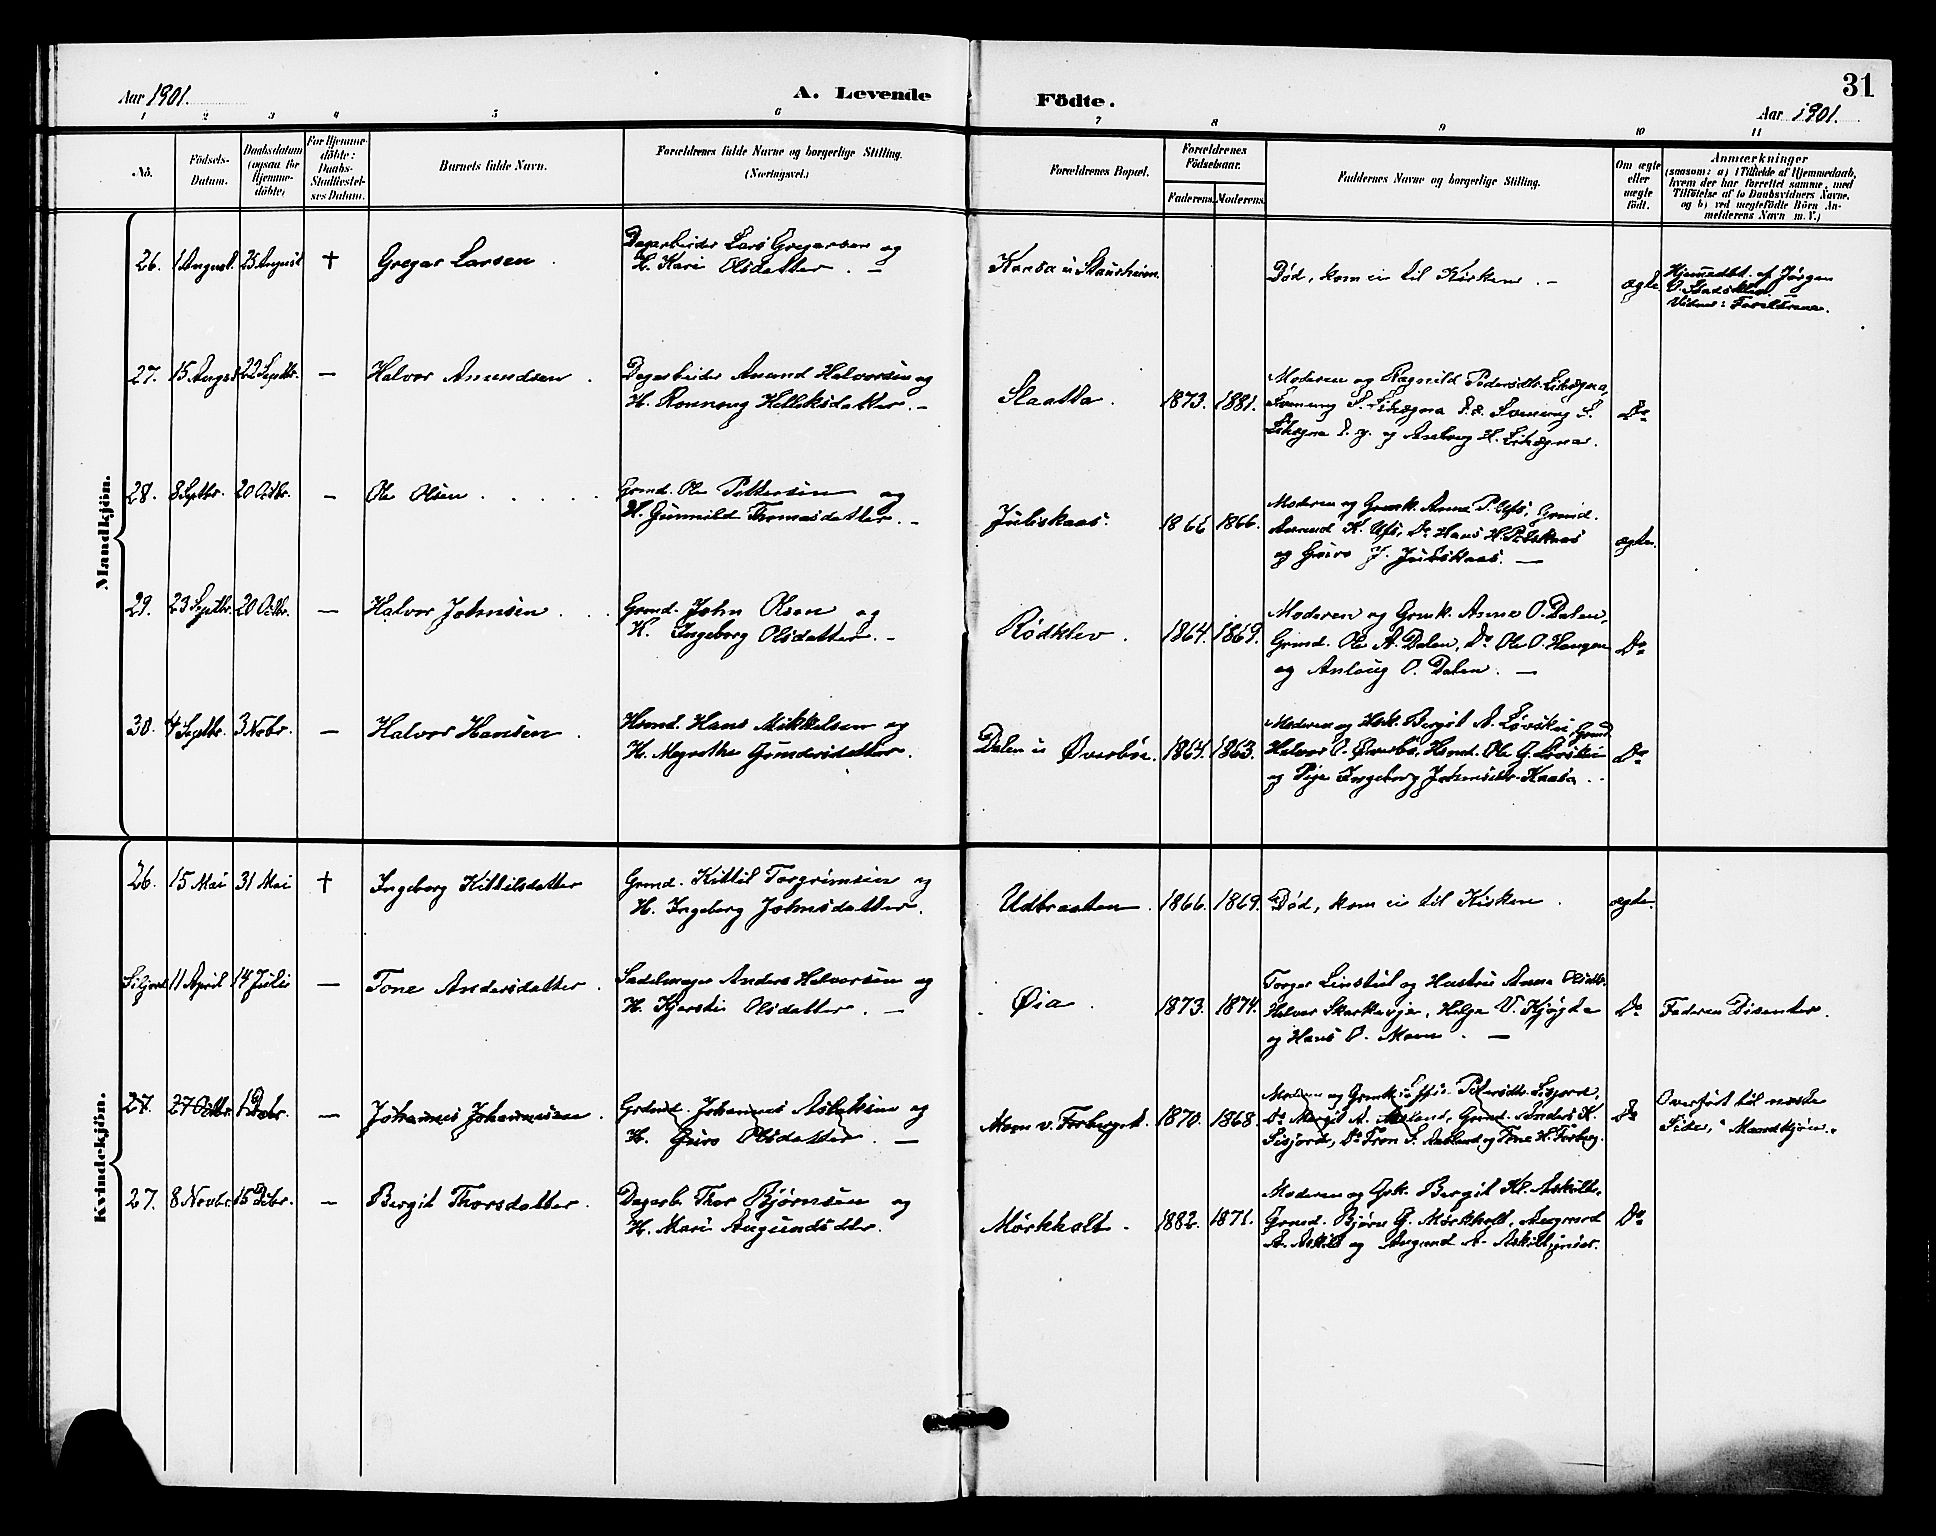 Aar 1901.
A. Levende
Födte.
31
Aar 1901.
1 2 3 4 5 6 7 8 9 10 11
No.
Födsels-
Datum.
Daabsdatum
(ogsaa for
Hjemme-
döbte)
For Hjemme-
döbte:
Daabs-
Stadfæstel-
ses Datum.
Barnets fulde Navn.
Forældrenes fulde Navne og borgerlige Stilling.
(Næringsvei.)
Forældrenes Bopæl.
Forældrenes
Födselsaar.
Faderens.
Moderens.
Faddernes Navne og borgerlige Stilling.
Om ægte
eller
uægte
födt.
Anmærkninger
(saasom: a) i Tilfælde af Hjemmedaab,
hvem der har forrettet samme, med
Tilföielse af to Daabsvidners Navne,
og b) ved uegtefödte Börn An-
melderens Navn m. V.)
Mandkjön.
26. 1 August. 25 August † Gregar Larsen.
Dagarbeider Lars Gregarsen og
H. Kari Olsdatter. –
Kaasa u Stausheim.
Död, kom ei til Kirken. –
ægte
Hjemmedbt. af Jørgen
O. Stadskleiv,
Vidner: Forældrene.
27. 15 August 22 Septbr. – Halvor Amundsen.
Dagarbeider Amund Halvorsen og
H. Rønnoug Helleksdatter. –
Slaatta. 1873. 1881.
Moderen og Ragnild Pedersdtr. Lihægna,
Do
28. 8 Septbr. 20 Octbr. – Ole Olsen
Grmd. Ole Pettersen og
H. Gunnild Thomasdatter. –
Juliskaas. 1866 1866.
Moderen og Grmk. Anne P. Ufs, Grmd.
Amund K. Ufs, Do Hans H. Pilskaas
og Guro J. Juliskaas. –
ægte.
29. 23 Septbr. 20 Octbr. – Halvor Johnsen
Grmd. John Olsen og
H. Ingeborg Olsdatter. –
Rödklev. 1864. 1869.
Moderen og Grmk. Anne O. Dalen,
Grmd. Ole A. Dalen, Do Ole O. Haugen
og Anlaug O. Dalen. –
Do
30. 4 Septbr. 3 Nobr. – Halvor Hansen.
Hsmd. Hans Mikkelsen og
H. Megrethe Gundersdatter.
Dalen u Øverbøe. 1864. 1863.
Moderen og Hsk. Bergit A. Løvskei, Grmd
Halvor O. Øverbø, Hsmd. Ole G. Løvskei
og Pige Ingeborg Johnsdtr. Kaasa.
Do
Kvindekjön.
26. 15 Mai 31 Mai † Ingeborg Kittilsdatter
Grmd. Kittil Torgrimsen og
H. Ingeborg Johnsdatter.
Udbraaten. 1866. 1869.
Död, kom ei til Kirken.
ægte.
Siljord 11 April 14 Juli – Tone Andersdatter.
Sadelmager Anders Halvorsen og
H. Kjersti Olsdatter. –
Øia. 1873. 1874.
Torger Linstul og Hustru Anne Olsdtr.
Halvor Skarkasjer, Helge V. Kjøgda
og Hans O. Moen. –
Do
Faderen Disenter.
27. 27 Octbr. 1 Debr. – Johannes Johannessen.
Grdmd. Johannes Aslaksen og
H. Guro Olsdatter. –
Moen v. Forbergsk. 1870. 1868.
Sisjord, Do Tron S. Aasland og Tone H. Forberg.
Do
Overført til næste
Side, "Mandkjøn".
27. 8 Novbr. 15 Debr. – Bergit Thorsdatter.
Dagarb. Thor Bjørnsen og
H. Mari Augundsdtr.
Mørkholt. 1882. 1871.
Moderen og Gsk. Bergit Kl. Askilt,
Grmd. Bjørn G. Mørkholt, Augund
A. Askilt og Augund A. Askilt junior.
Do